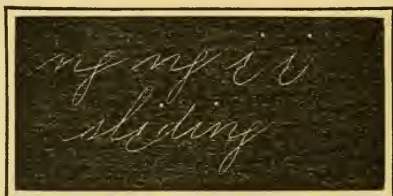 ng ng i i
sliding